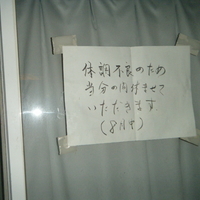 体調不良のため
当分の間休ませて
いただきます
(8月中)